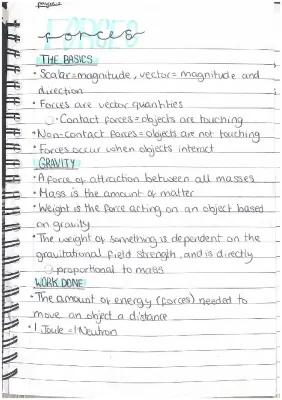 physics
FORCES
forces
THE BASICS
• Scalar=magnitude, vector= magnitude and
direction
• Forces are vector quantities
○ Contact forces= objects are touching
• Non-contact forces=objects are not touching
• Forces occur when objects interact
GRAVITY
• A force of attraction between all masses
• Mass is the amount of matter
• Weight is the force acting on an object based
on gravity
• The weight of something is dependent on the
gravitational field strength, and is directly
○ proportional to mass
WORK DONE
• The amount of energy (forces) needed to
move an object a distance
• 1 Joule = 1 Neutron